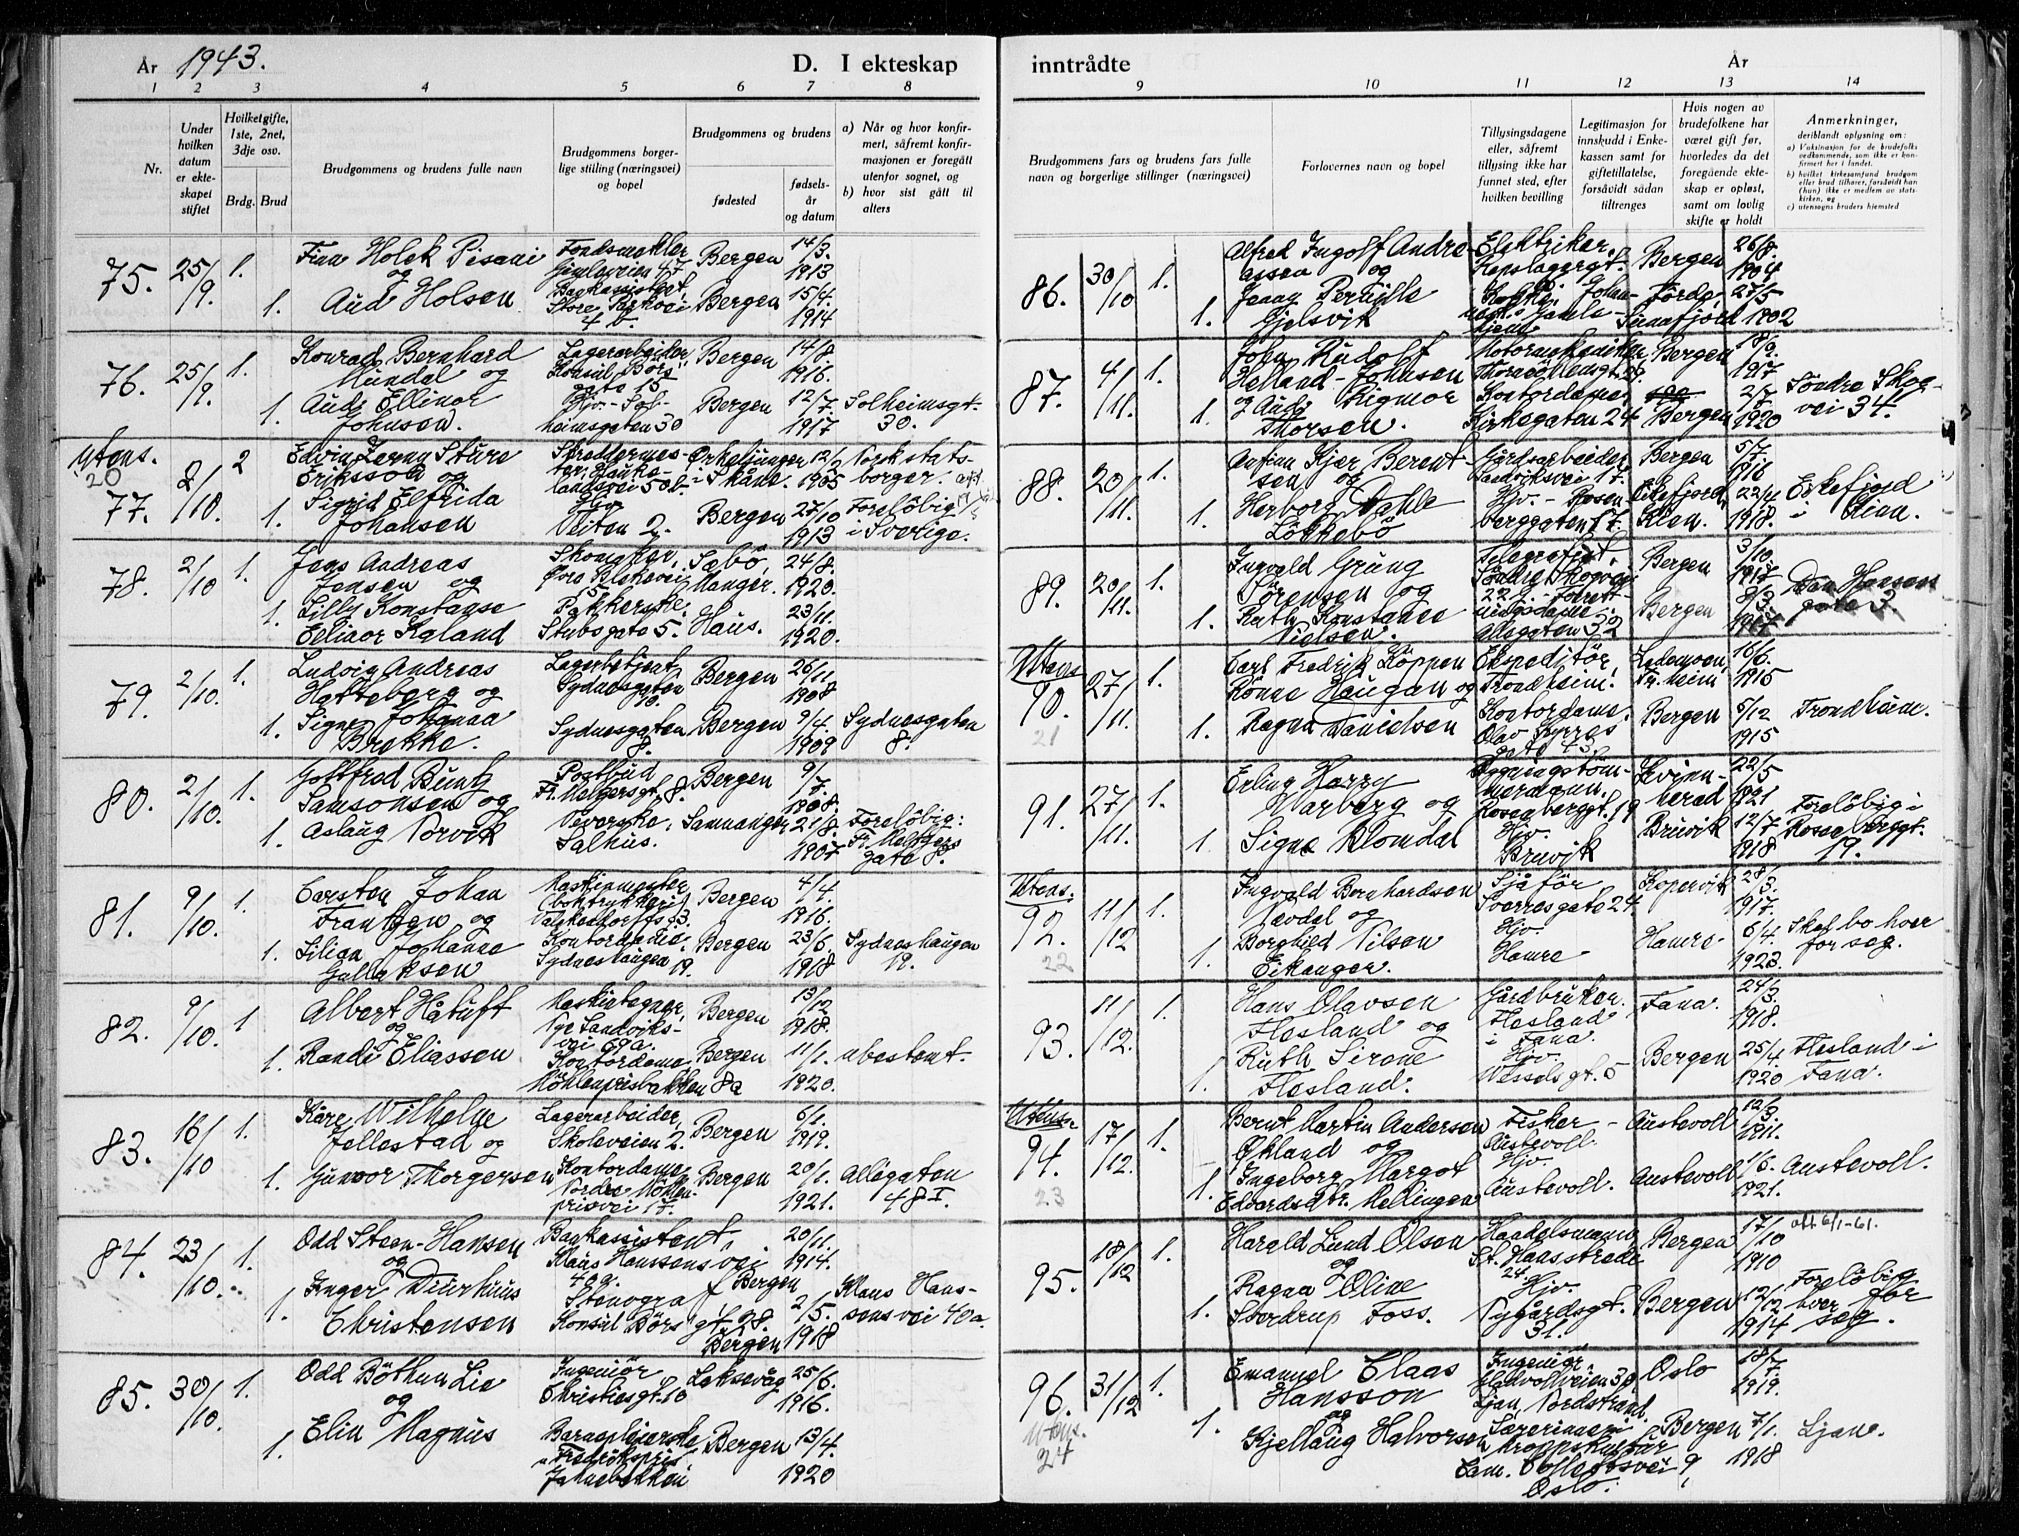 År 1943.
D. I ekteskap
1 2 3 4 5 6 7 8
Nr.
Under hvilken datum er ekteskapet stiftet
Hvilketgifte, 1ste, 2net, 3dje osv.
Brdg. Brud
Brudgommens og brudens fulle navn
Brudgommens borgerlige stilling (næringsvei) og bopel
Brudgommens og brudens
fødested
fødselsår og datum
a) Når og hvor konfirmert, såfremt konfirmasjonen er foregått utenfor sognet, og
b) hvor sist gått til alters
75. 25/9. 1. Finn Holck Pisani Fondsmekler Bergen 14/3.
og Gimleveien 47 1913
1. Aud Holsen Bergen 15/4.
4 b. 1914
76. 25/9. 1. Konrad Bernhard Lagerarbeider, Bergen 14/8.
Mundal og Konsul Börs 1916.
gate 15
1. Aud Ellinor Hjv. - Sol- Bergen 12/7. Solheimsgt.
Johnsen. heimsgaten 30 1917 30.
Utens.
20
77. 2/10. 2 Edvin Sture 12/ Norsk stats-
Eriksson og Skåne. 1905 borger.
1. Sigrid Elfrida Hjv. Bergen 27/10 Foreløbig
Johansen Veiten 2. 1913 i Sverige.
78. 2/10 1. Jens Andreas Sæbö, 24/8.
Jensen og Manger. 1920.
1. Lilly Konstanse Pakkerske. Haus. 23/11.
Ellinor Stubsgate 5. 1920.
79. 2/10. 1. Ludvig Andreas Lagerbetjent Bergen 26/11
Hatteberg og Sydnesgaten 1908
1. Signe Johanna Sydnesgaten Bergen 9/4. Sydnesgaten
Brekke. 8. 1909 8.
80. 2/10. 1. Gottfred Buntz Postbud Bergen 9/7.
Samsonsen og Fr. Meltzersgt. 8. 1908.
1. Aslaug Norvik Veverske, Samnanger 21/8. Foreløbig:
Salhus. 1907 Fr. Meltzers
gate 8.
81. 9/10. 1. Carsten Johan Maskinmester Bergen 4/4.
Frantzen og (boktrykkeri) 1916.
1. Lilian Johanne Kontordame, Bergen 23/6 Sydneshaugen
Gullaksen Sydneshaugen 19. 1918 19.
82. 9/10. 1 Albert Håtuft Bergen 13/12
og Nye Sandviks- 1918.
vei 69a.
1. Randi Eliassen Kontordame Bergen 11/1. ubestemt.
Möhlenprisbakken 8a 1920.
83. 16/10 1. Kåre Wilhelm Lagerarbeider, Bergen 6/1.
Jellestad og Skoleveien 2. 1919.
1. Gunvor Thorgersen Kontordame Bergen 20/1. Allégaten
Nordre Möhlen- 1921. 48 I.
prisvei 17.
84. 23/10. 1. Odd Steen-Hansen Bankassistent 20/11.
og Klaus Hanssens vei 1914.
40a. Bergen
1. Inger Duurhuus Stenograf 2/5. Klaus Hans-
Christensen Konsul Börs gt. 28. 1918 sens vei 40a.
Bergen
85. 30/10. 1. Odd Böthun Lie Ingeniör Laksevåg 25/6.
og Christiesgt. 10 1916.
1. Elin Magnus Barnepleierske, Bergen 13/4.
1920
inntrådte
År
9 10 11 12 13 14
Brudgommens fars og brudens fars fulle navn og borgerlige stillinger (næringsvei)
Forlovernes navn og bopel
Tillysingsdagene eller, såfremt tillysing ikke har funnet sted, efter hvilken bevilling
Legitimasjon for innskudd i Enkekassen samt for giftetillatelse, forsåvidt sådan tiltrenges
Hvis nogen av brudefolkene har været gift før, hvorledes da det foregående ekteskap er opløst, samt om lovlig skifte er holdt
Anmerkninger,
deriblandt oplysning om:
a) Vaksinasjon for de brudefolks vedkommende, som ikke er konfirmert her i landet.
b) hvilket kirkesamfund brudgom eller brud tilhører, forsåvidt han (hun) ikke er medlem av statskirken, og
c) utensogns bruders hjemsted
86. 30/10 1. Alfred Ingolf Andre- Elektriker. Bergen 26/8.
assen og 1904
1. Jenny Pernille Kokke, Johan- Förde, 27/5
Gjelsvik Sunnfjord 1902
87. 4/11. 1. John Rudolf Motormekaniker, Bergen 18/9.
Helland-Johnsen 1917
1. og Aud Rigmor Kontordame, 2/7. Söndre Skog-
Thorsen. Kirkegaten 24 Bergen 1920 vei 34.
88. 20/11. 1. Kjær Berent- Gårdsarbeider Bergen 5/7.
sen og Sandviksvei 17. 1916
1. Herborg Dahle Hjv. - Rosen- Eikefjord, 22/4 Eikefjord
Lökkebö berggaten 17. Kinn. 1918. i Kinn.
89. 20/11. 1. Ingvald Grung Telegrafist, Bergen 3/10
Sörensen og Söndre Skogvei 1917
22 1/3.
1. Ruth Konstanse Bergen gate 3.
Nielsen. Allégaten 32
Utens.
90. 27/11. 1. Carl Fredrik Köppen Ekspeditör, Lademoen, 16/6.
Rönne Haugan og Trondheim. Tr. heim 1915
1. Ragna Danielsen Kontordame, Bergen 5/12 Trondheim.
21 Olav Kyrres 1915
gate 43.
91. 27/11. 1. Erling Harry Kvinn- 22/5
Warberg og Rosenberggt. 19 herad 1921 Foreløbig i
1. Signe Blomdal Hjv. Bruvik 12/7 Rosenberggt.
Bruvik 1918 19.
Utens.
92. 11/12 1. Ingvald Bernhardsen Sjåför Kopervik 28/3.
Nevdal og Sverresgate 24 1917.
1. Borghild Nilsen Hjv. Hamre 6/4. Skal bo hver
22 Eikanger. Hamre 1923. for seg.
93. 11/12. 1. Hans Olavsen Gårdbruker. Fana. 24/3.
Flesland og Flesland 1918.
i Fana.
1. Ruth Sirene Hjv. Bergen 25/4. Flesland i
Flesland. Wesselsgt. 5 1920 Fana.
Utens.
94. 17/12. 1. Bernt Martin Andersen Fisker - Austevoll 12/3.
Økland og Austevoll. 1911.
1. Ingeborg Margot Hjv. Austevoll 1/6. Austevoll.
23 Edvardsdtr. Mellingen Austevoll. 1921.
95. 18/12 1. Harald Lund Olsen Handelsmann Bergen 17/10 att 6/1-61.
og St. Maasstrede 1910
24
1. Ragna Oline Hjv. Bergen 12/12 Foreløbig
Sverdrup Foss. Nygårdsgt. 1914 hver for
31. seg.
96. 31/12 1. Emanuel Claas Ingeniör. Oslo 18/7.
Hansson 1919.
og Ljan, Nordstrand.
Utens. 1. Kjellaug Halvorsen Lærerinne i Bergen 7/1. Ljan.
24 kroppskultur 1918
Cam. Collettsvei 9,
Oslo.